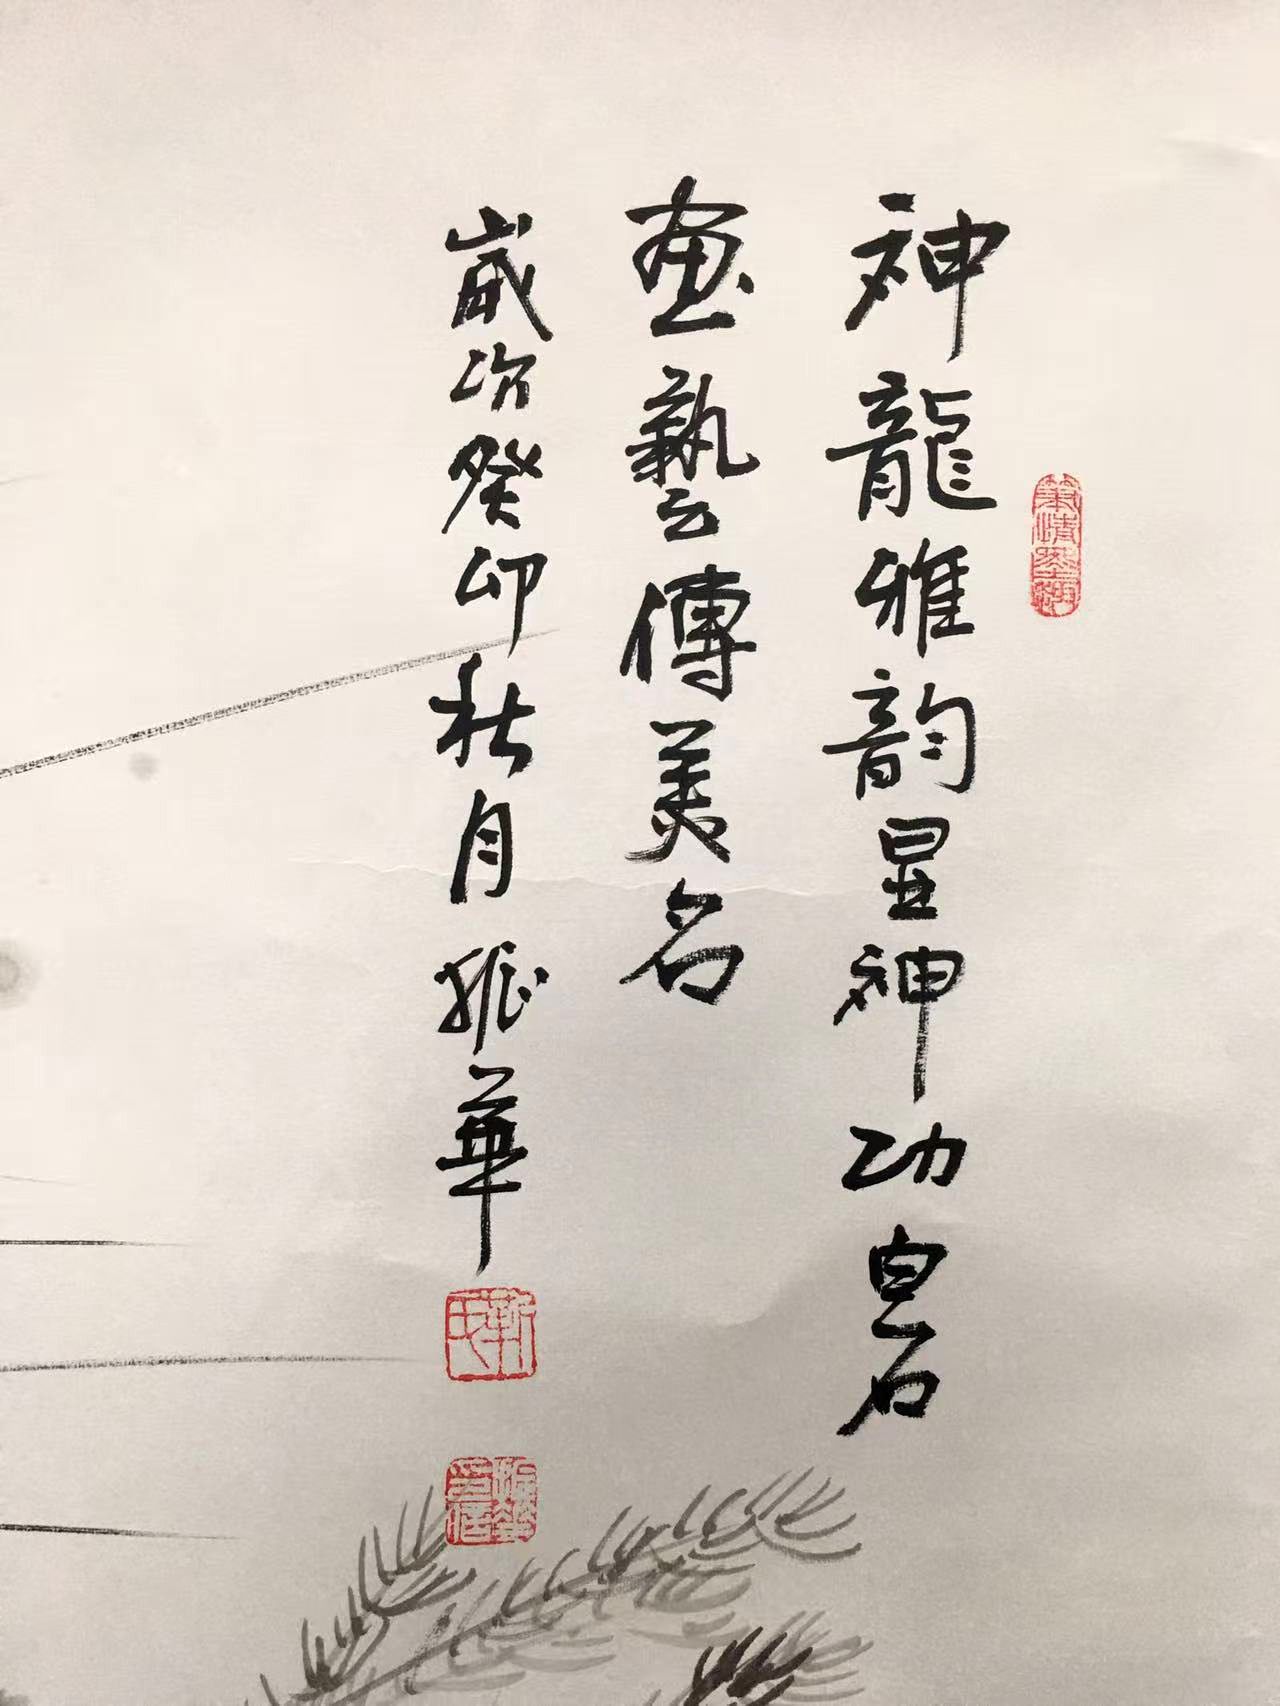 神龍雅韵显神功皇石
画藝傳美名
歲次癸卯秋月振華